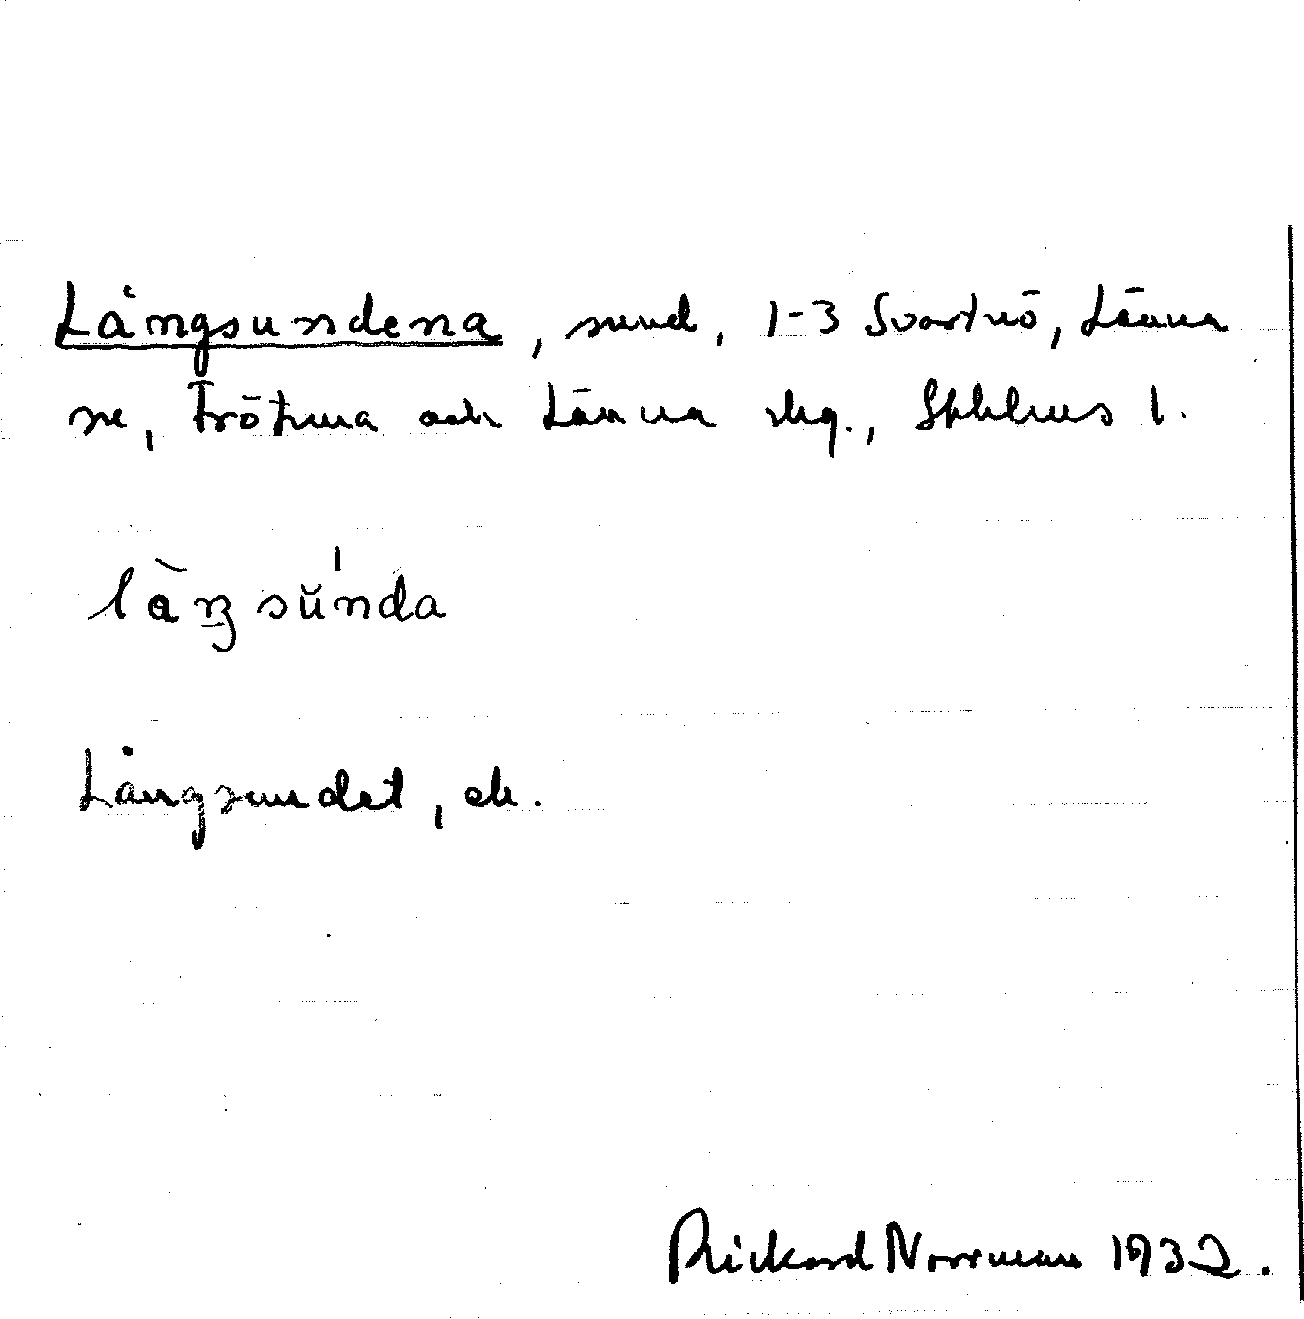 Långsundena, sund, 1-3 Svartnö, Länna
sn, Frötuna och Länna skg., Sthlms l.
làŋsŭ́nda
Långsundet, ek.
Rickard Norrman 1932.